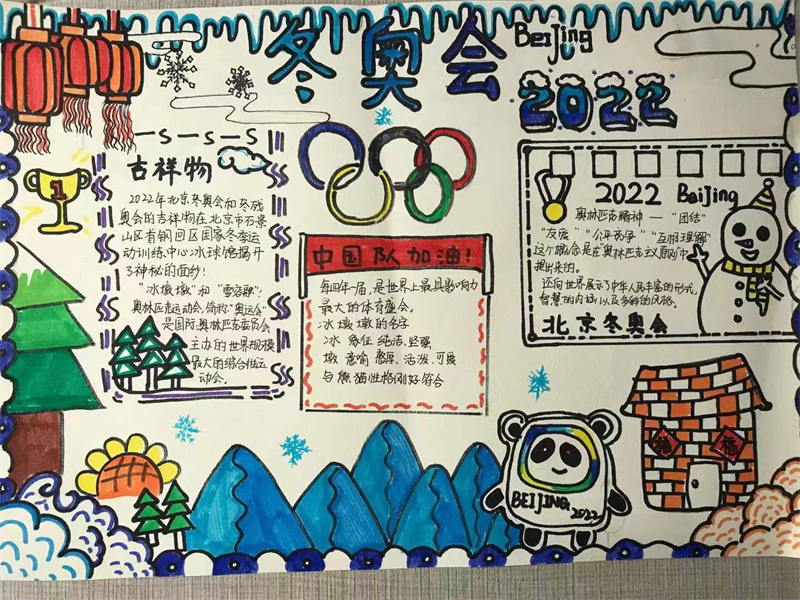 冬奥会
BeiJing
2022
S S S
吉祥物
2022年北京冬奥会和冬残
奥会的吉祥物在北京市石景
山区首钢园区国家冬季运
动训练中心冰球馆揭开
了神秘的面纱!
"冰墩墩"和"雪容融".
奥林匹克运动会,简称"奥运会"
是国际奥林匹克委员会
主办的世界规模
最大的综合性运
动会。
1
中国队加油!
每四年一届,是世界上最具影响力
最大的体育盛会。
冰墩墩的名字
冰 象征 纯洁、坚强
墩 意喻 憨厚、活泼、可爱
与熊猫性格刚好符合
2022 BeiJing
奥林匹克精神—"团结"
"友谊""公平竞争""互相理解"
这个概念是在奥林匹克主义原则中
提出来的。
还向世界展示了中华人民丰富的形式,
智慧的内涵以及多彩的风格。
北京冬奥会
福
福
BEIJING
2022